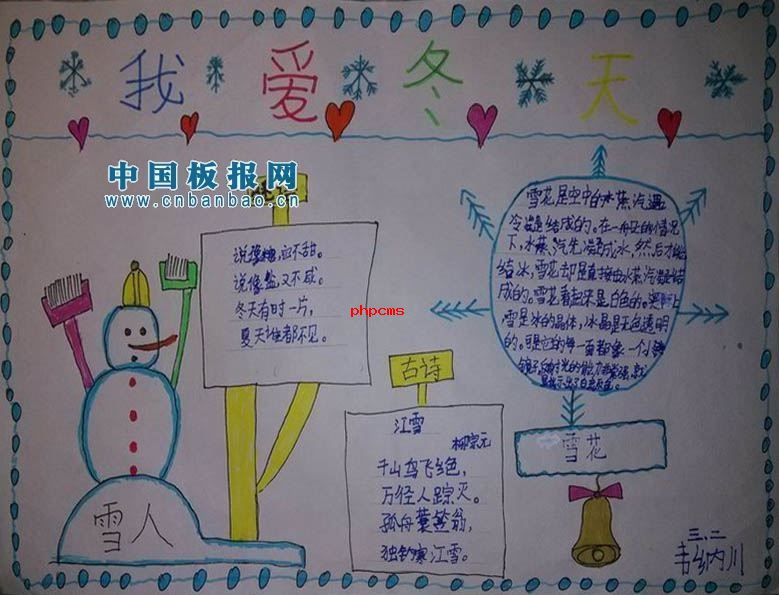 我爱冬天
中国板报网
www.cnbanbao.cn
说像糖,它不甜。
说像盐,又不咸。
冬天有时一片,
夏天谁都不见。
phpcms
古诗
江雪
柳宗元
千山鸟飞绝,
万径人踪灭。
孤舟蓑笠翁,
独钓寒江雪。
雪花是空中的水蒸汽遇
冷凝结成的。在一般的情况
下,水蒸汽先凝成水,然后才能
结冰,雪花却是直接由水蒸汽凝结
成的。雪花看起来是白色的。实际上
雪是冰的晶体,冰晶是无色透明
的。可是它的每一面都像一个小
雪花
雪人
三.二